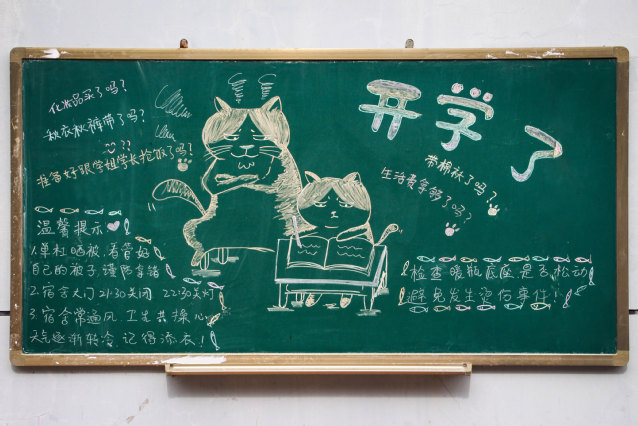 化妆品买了吗?
秋衣秋裤带了吗?
??
准备好跟学姐学长抢饭了吗?
开学了
带棉袄了吗?
生活费拿够了吗?
温馨提示
1.单杠晒被,看管好
自己的被子,谨防拿错
2.宿舍大门21:30关闭 22:30关灯
3.宿舍常通风,卫生共操心
天气逐渐转冷,记得添衣!
检查暖瓶底座是否松动
避免发生烫伤事件!